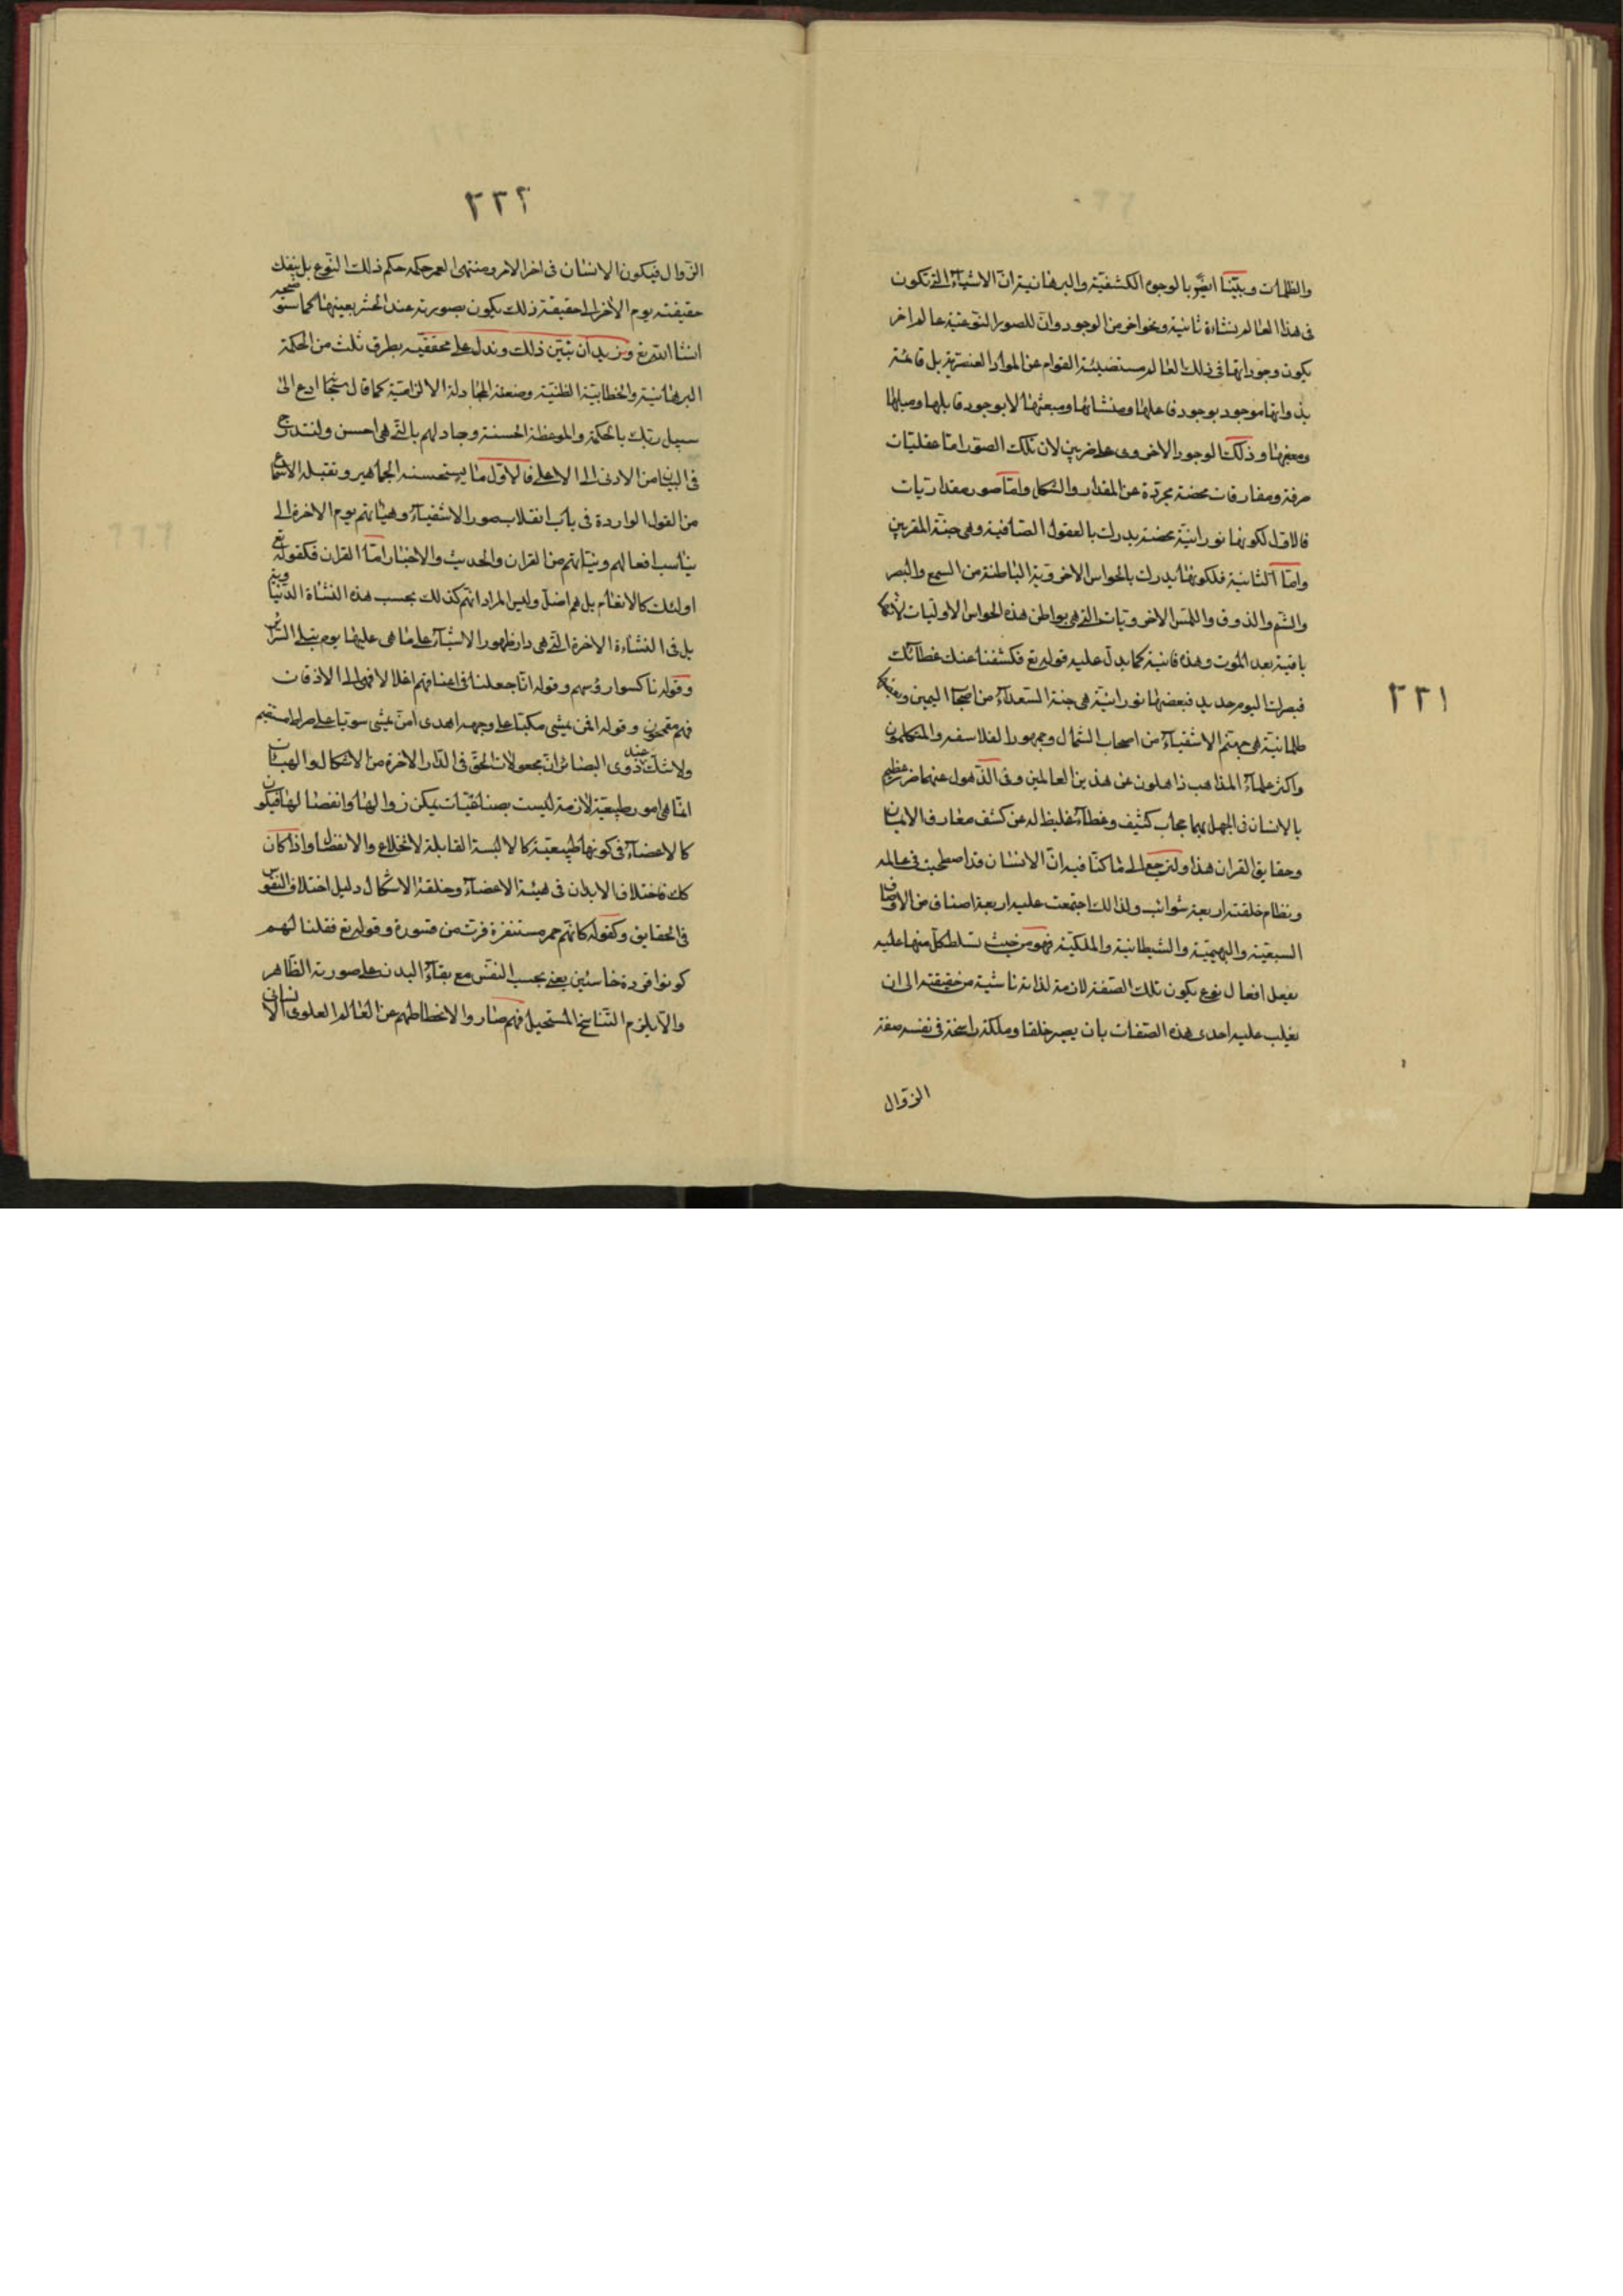 ٢٢١
والظلمات وبيّنا ايضًا بالوجوه الكشفيّة والبرهانية انّ الاشياء الّتى تكون
فى هذا العالم نشاءة ثانية ونحو اخر من الوجود وانّ للصور النّوعيّة عالم اخر
يكون وجوداتها فى ذلك العالم القوام عن المواد العنصريّة بل قائمة
بذواتها موجود بوجود فاعلها ومنشائها ومبعثها لا بوجود قابلها
ومغيرها وذلك الوجود الاخروى على ضربين لان تلك الصور امّا عقليّات
صرفة ومفارقات محضة مجرّدة عن المقدار والشكل وامّا صور مقداريّات
فالاوّل لكونها نورانيّة محضة يدرك بالعقول الصّافية وهى جنّة المقرّبين
وامّا الثّانية فلكونها يدرك بالحواس الاخرويّة الباطنة من السمع والبصر
والشّم والذوق واللمس الاخرويّات الّتى هى بواطن هذه الحواس الاوليّات لانّها
باقية بعد الموت وهذه فانية كما يدلّ عليه قوله تع فكشفنا عنك غطآئك
فبصرك اليوم حديد فبعضها نورانيّة هى جنة السّعدآء من اصحاب اليمين وبعضها
ظلمانيّة هى جهنّم الاشقيآء من اصحاب الشمال وجمهور الفلاسفه والمتكلمون
واكثر علمآء المذاهب ذاهلون عن هذين العالمين وفى الذّهول عنهما ضر عظيم
بالانسان فى الجهل بهما حجاب كثيف وغطآء غليظ له عن كشف معارف الايمان
وحقايق القران هذا ولنرجع الى ما كنّا فيه انّ الانسان قد اصطحبت فى عالمه
ونظام خلقته اربعة شوائب ولذالك اجتمعت عليه اربعة اصناف من الاوصاف
السبعيّة والبهيميّة والشيطانية والملكيّة فهو من حيث تسلط كلّ منها عليه
يفعل افعال نوع يكون تلك الصّفة لازمة لذاته ناشية من حقيقته الى ان
يغلب عليه احدى هذه الصّفات بان يصير خلقا وملكة راسخة فى نفسه صفة
الزّوال
٢٢٢
الزّوال فيكون الانسان فى اخر الامر ومنتهى العمر حكمه حكم ذلك النّوع بل ينقلب
حقيقته يوم الاخر الى حقيقة ذلك يكون بصورته عند الحشر بعينها كما ستوضحه
انشا الله تع ونريد ان نبيّن ذلك وندل على تحققيه بطرق ثلث من الحكمة
البرهانية والخطابيّة الظنيّة وصنعة المجادلة الالزاميّة كما قال سبحا ادع الى
سبيل ربّك بالحكمة والموعظة الحسنة وجادلهم بالّتى هى احسن ولنتدرج
فى البيان من الادنى الى الاعلى فالاوّل ما يستحسنه الجماهير وتقبله الاسماع
من القول الواردة فى باب انقلاب صور الاشقيآء وهيئاتهم يوم الاخرة الى
يناسب افعالهم ونيّاتهم من القران والحديث والاخبار امّا القران فكقوله تع
اولئك كالانعام بل هم اضلّ وليس المراد انّهم كذلك بحسب هذه النشاة الدّنيا
بل فى النشاءة الاخرة الّتى هى دار ظهور الاشيآء على ما هى عليها يوم تبلى السّرائر
وقوله ناكسوا رؤسهم وقوله انّا جعلنا فى اعناقهم اغلالا فهى الى الاذقان
فهم مقمحون وقوله افمن يمشى مكبّا على وجهه اهدى امّن يمشى سويّا على صراط مستقيم
ولا شكّ عند ذوى البصائر انّ مجعولات الحقّ فى الدّار الاخرة من الاشكال والهيئات
انّما هى امور طبيعيّة لازمة ليست بصناعيّات يمكن زوالها وانفصالها فيكون
كالاعضآء فى كونها طبيعيّة كالالبسة القابلة لانخلاع والانفصال واذا كان
كك فاختلاف الابدان فى هيئة الاعضآء وخلقة الاشكال دليل اختلاف النفوس
فى الحقايق وكقوله كانّهم حمر مستنفرة فرّت من قسورة وقوله تع فقلنا لهم
كونوا قردة خاسئين يعنى بحسب النفس مع بقآء البدن على صورته الظّاهر
والّا يلزم التّناسخ المستحيل فهم صاروا لانحطاطهم عن العالم العلوى الانسانى